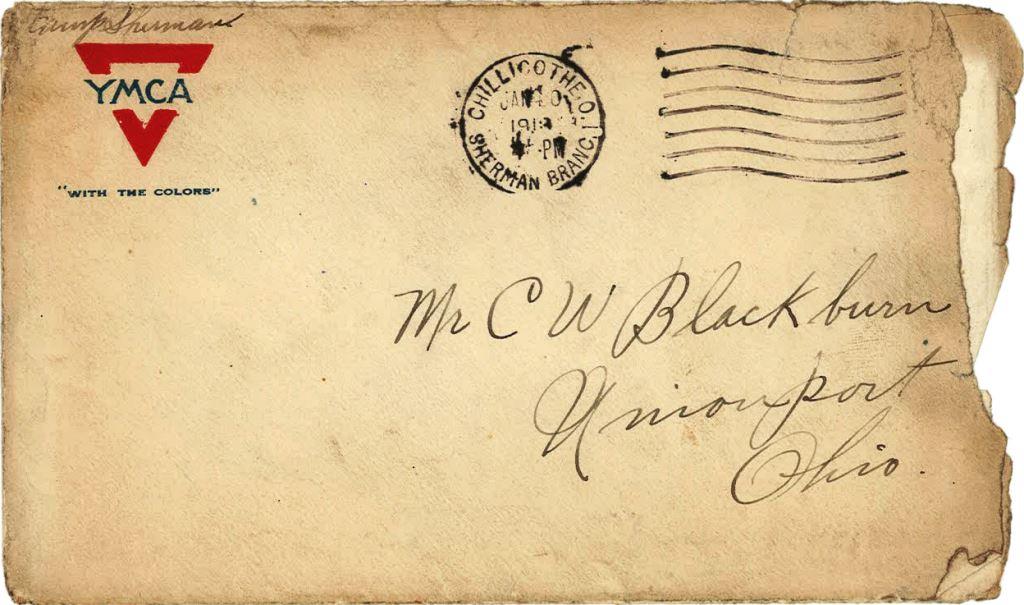 Camp Sherman
YMCA
"WITH THE COLORS"
CHILLICOTHE, O.
JAN
PM
SHERMAN BRANC
Mr C W Blackburn
Unionport
Ohio.